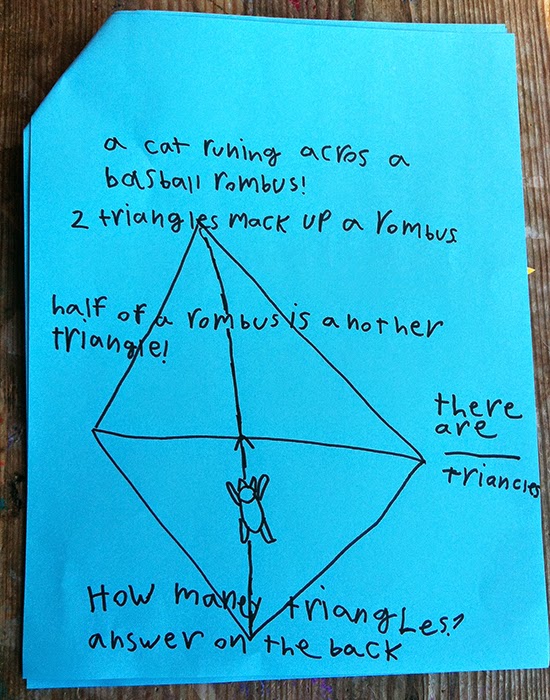 a cat runing acros a
basball rombus!
2 triangles mack up a rombus
half of a rombus is another
triangle!
there
are
triancles
How maney triangles?
answer on the back